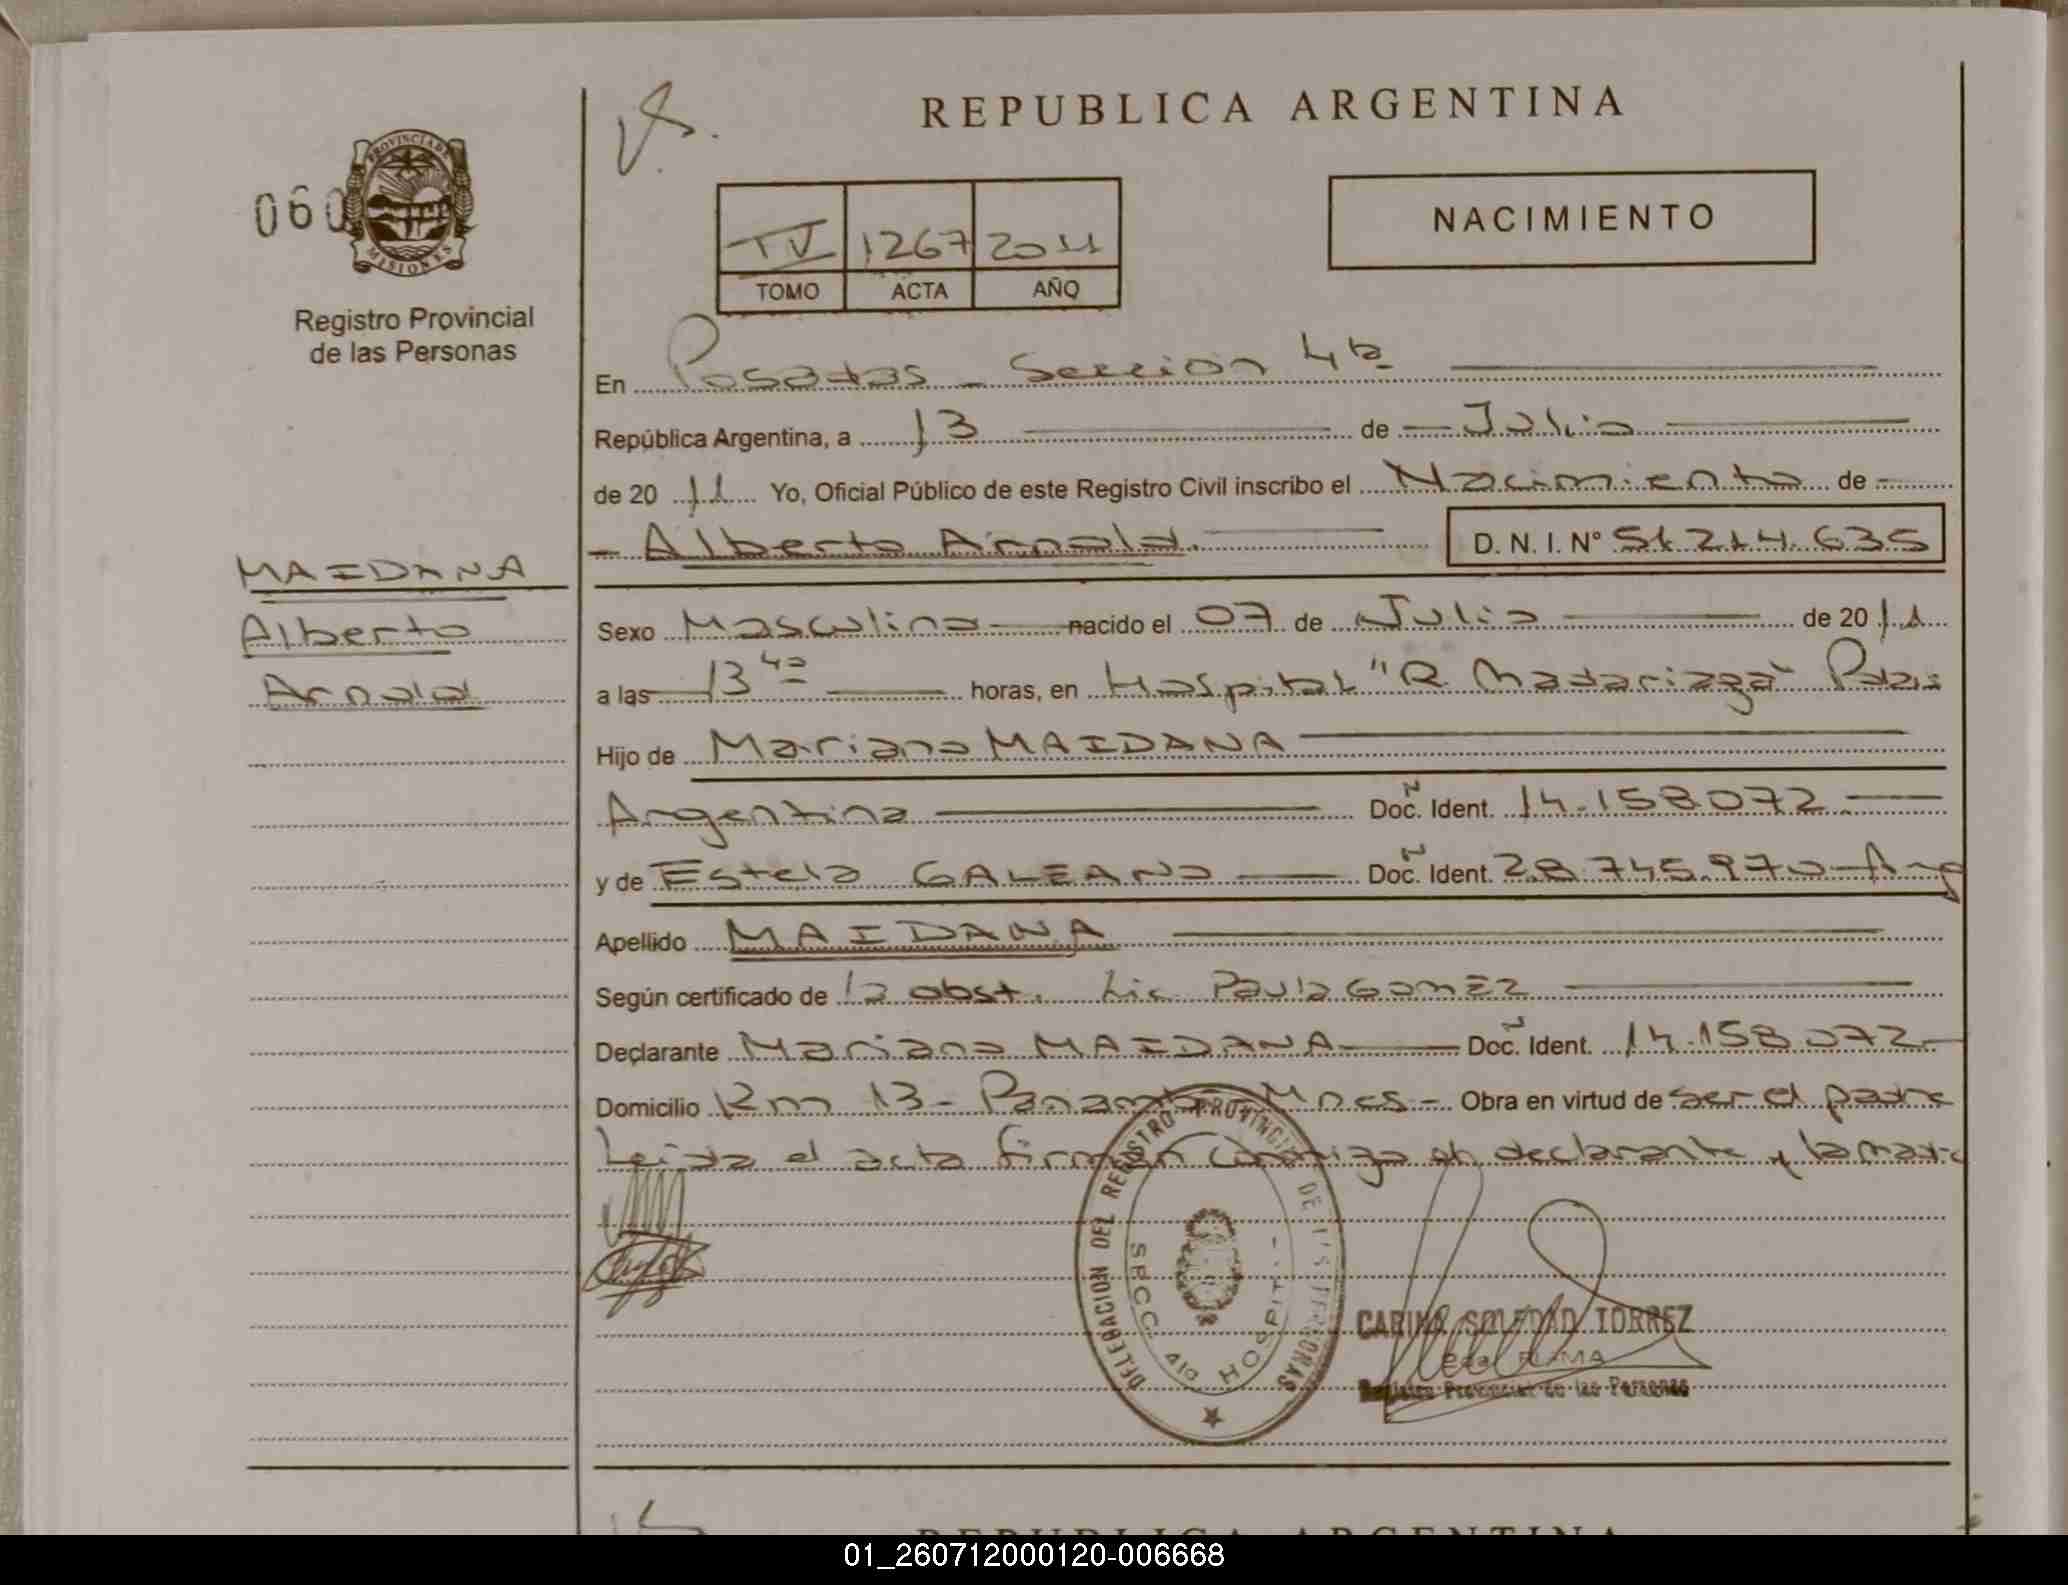 REPUBLICA ARGENTINA
060
PROVINCIA DE MISIONES
Registro Provincial
de las Personas
NACIMIENTO
IV 1267 2011
TOMO ACTA AÑO
En Posadas - Sección 4ta
República Argentina, a 13 de Julio
de 2011 Yo, Oficial Público de este Registro Civil inscribo el Nacimiento de
- Alberto Arnold. D. N. I. N° 51.214.635
MAIDANA
Alberto
Arnold
Sexo Masculino nacido el 07 de Julio de 2011
a las 13 40 horas, en Hospital "R. Madariaga" Pdas
Hijo de Mariano MAIDANA
Argentina Doc. Ident. 14.158.072
y de Estela GALEANO Doc. Ident. 28.745.970 - Arg
Apellido MAIDANA
Según certificado de la obst. Lic. Paula GOMEZ
Declarante Mariano MAIDANA Doc. Ident. 14.158.072
Domicilio Km 13 - Panambí Mnes - Obra en virtud de ser el padre
Leída el acta firman conmigo el declarante y la madre
DELEGACION DEL REGISTRO PROVINCIAL DE LAS PERSONAS
SECC. 4ta HOSPIT
CARINA SOLEDAD TORREZ
Registro Provincial de las Personas
REPUBLICA ARGENTINA
01_260712000120-006668